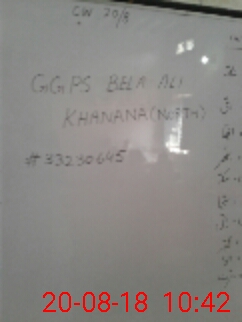 CW 20/8
GGPS BELA ALI
KHANANA (NORTH)
# 33230645
20-08-18 10:42